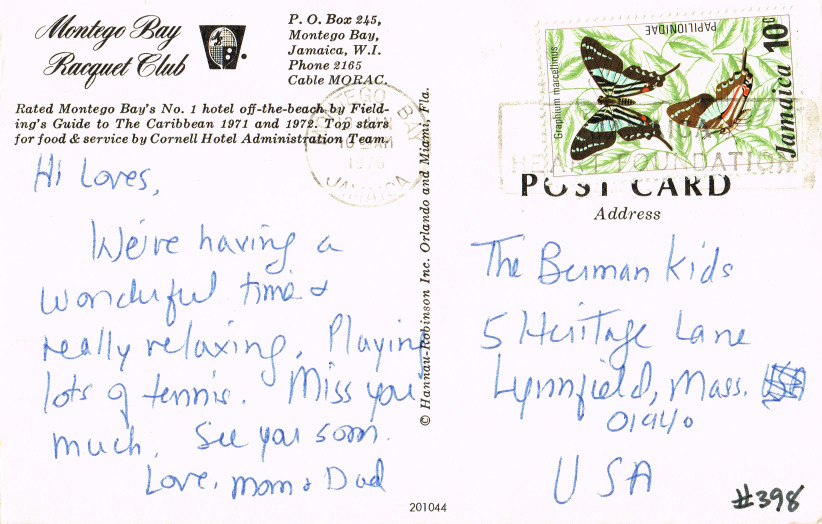 Montego Bay
Racquet Club
P. O. Box 245,
Montego Bay,
Jamaica, W.I.
Phone 2165
Cable MORAC.
Rated Montego Bay's No. 1 hotel off-the-beach by Field-
ing's Guide to The Caribbean 1971 and 1972. Top stars
for food & service by Cornell Hotel Administration Team.
Hi Loves,
We're having a
wonderful time &
really relaxing. Playing
lots of tennis. Miss you
much. See you soon.
Love, Mom & Dad
© Hannau-Robinson Inc. Orlando and Miami, Fla.
201044
MONTEGO BAY
JAMAICA
1976
Graphium marcellinus
PAPILIONIDAE
Jamaica 10c
HEART FOUNDATION
POST CARD
Address
The Berman Kids
5 Heritage Lane
Lynnfield, Mass.
01940
USA
#398